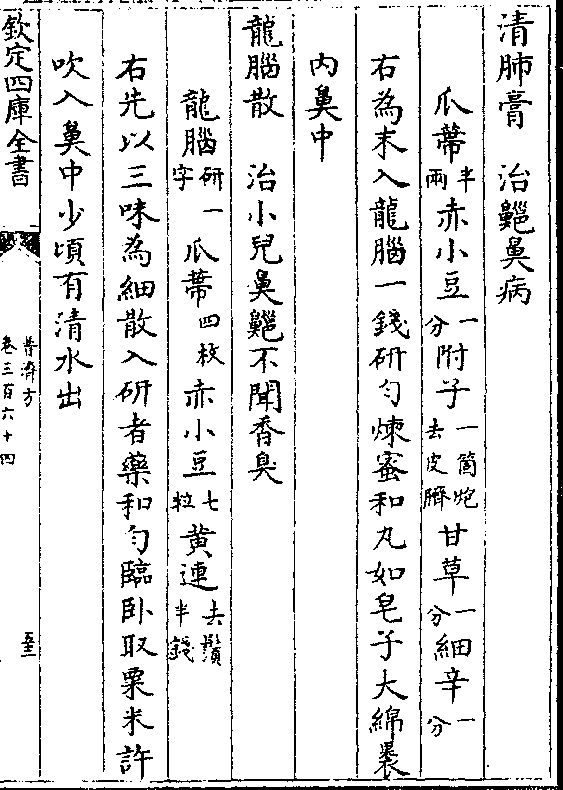 清肺膏　治齆鼻病
瓜蒂半兩赤小豆一分附子一箇炮去皮臍甘草一分細辛一分
右為末入龍腦一錢研勻煉蜜和丸如皂子大綿裹
内鼻中
龍腦散　治小兒鼻齆不聞香臭
龍腦研一字瓜蒂四枚赤小豆七粒黄連去鬚半錢
右先以三味為細散入研者藥和勻臨卧取粟米許
吹入鼻中少頃有清水出
欽定四庫全書
普濟方
卷三百六十四